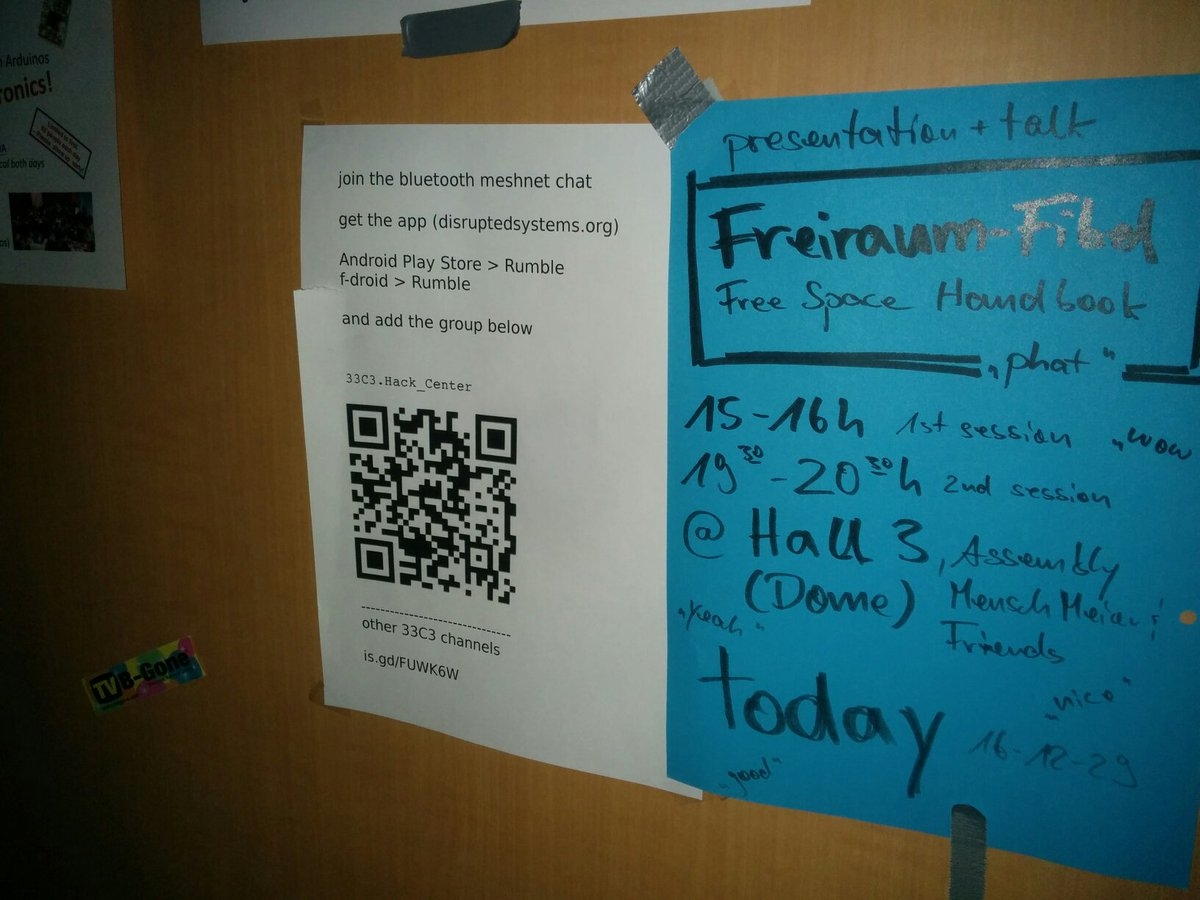 n Arduinos
ronics!
col both days
join the bluetooth meshnet chat
get the app (disruptedsystems.org)
Android Play Store > Rumble
f-droid > Rumble
and add the group below
33C3.Hack_Center
other 33C3 channels
is.gd/FUWK6W
TV B-Gone
presentation + talk
Freiraum-Fibel
Free Space Handbook
„phat“
15-16h 1st session „wow
19³⁰-20³⁰h 2nd session
@ Hall 3, Assembly
(Dome) Mensch Meier!
„yeah“ Friends
today „nice“
16-12-29
„good“